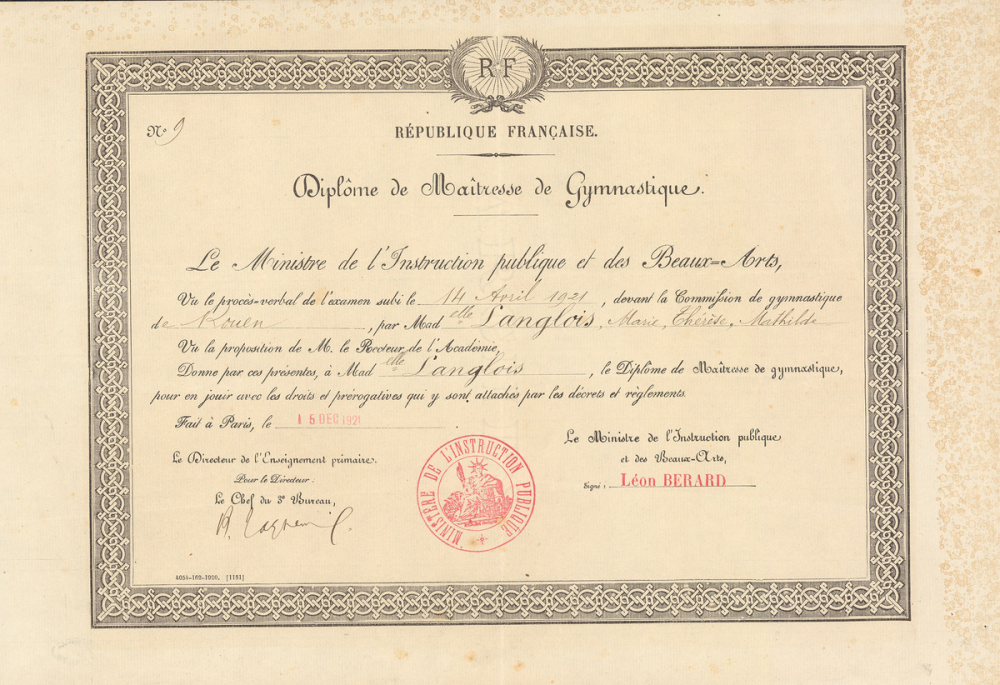 RF
N° 9
RÉPUBLIQUE FRANÇAISE.
Diplôme de Maîtresse de Gymnastique.
Le Ministre de l'Instruction publique et des Beaux=Arts,
Vu le procès=verbal de l'examen subi le 14 Avril 1921, devant la Commission de gymnastique
de Rouen, par Mad elle Langlois, Marie, Thérèse, Mathilde
Vu la proposition de M. le Recteur de l'Académie,
Donne par ces présentes, à Mad elle Langlois, le Diplôme de Maîtresse de gymnastique,
pour en jouir avec les droits et prérogatives qui y sont attachés par les décrets et règlements.
Fait à Paris, le 15 DEC 1921
Le Directeur de l'Enseignement primaire.
Pour le Directeur:
Le Chef du 3e Bureau,
Le Ministre de l'Instruction publique
et des Beaux-Arts,
Signé: Léon BERARD
MINISTÈRE DE L'INSTRUCTION PUBLIQUE